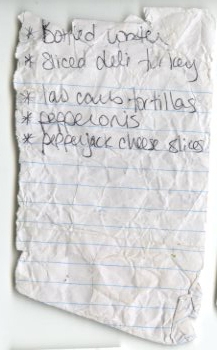 * Bottled water
* sliced deli turkey
* low carb tortillas
* pepperonis
* pepperjack cheese slices